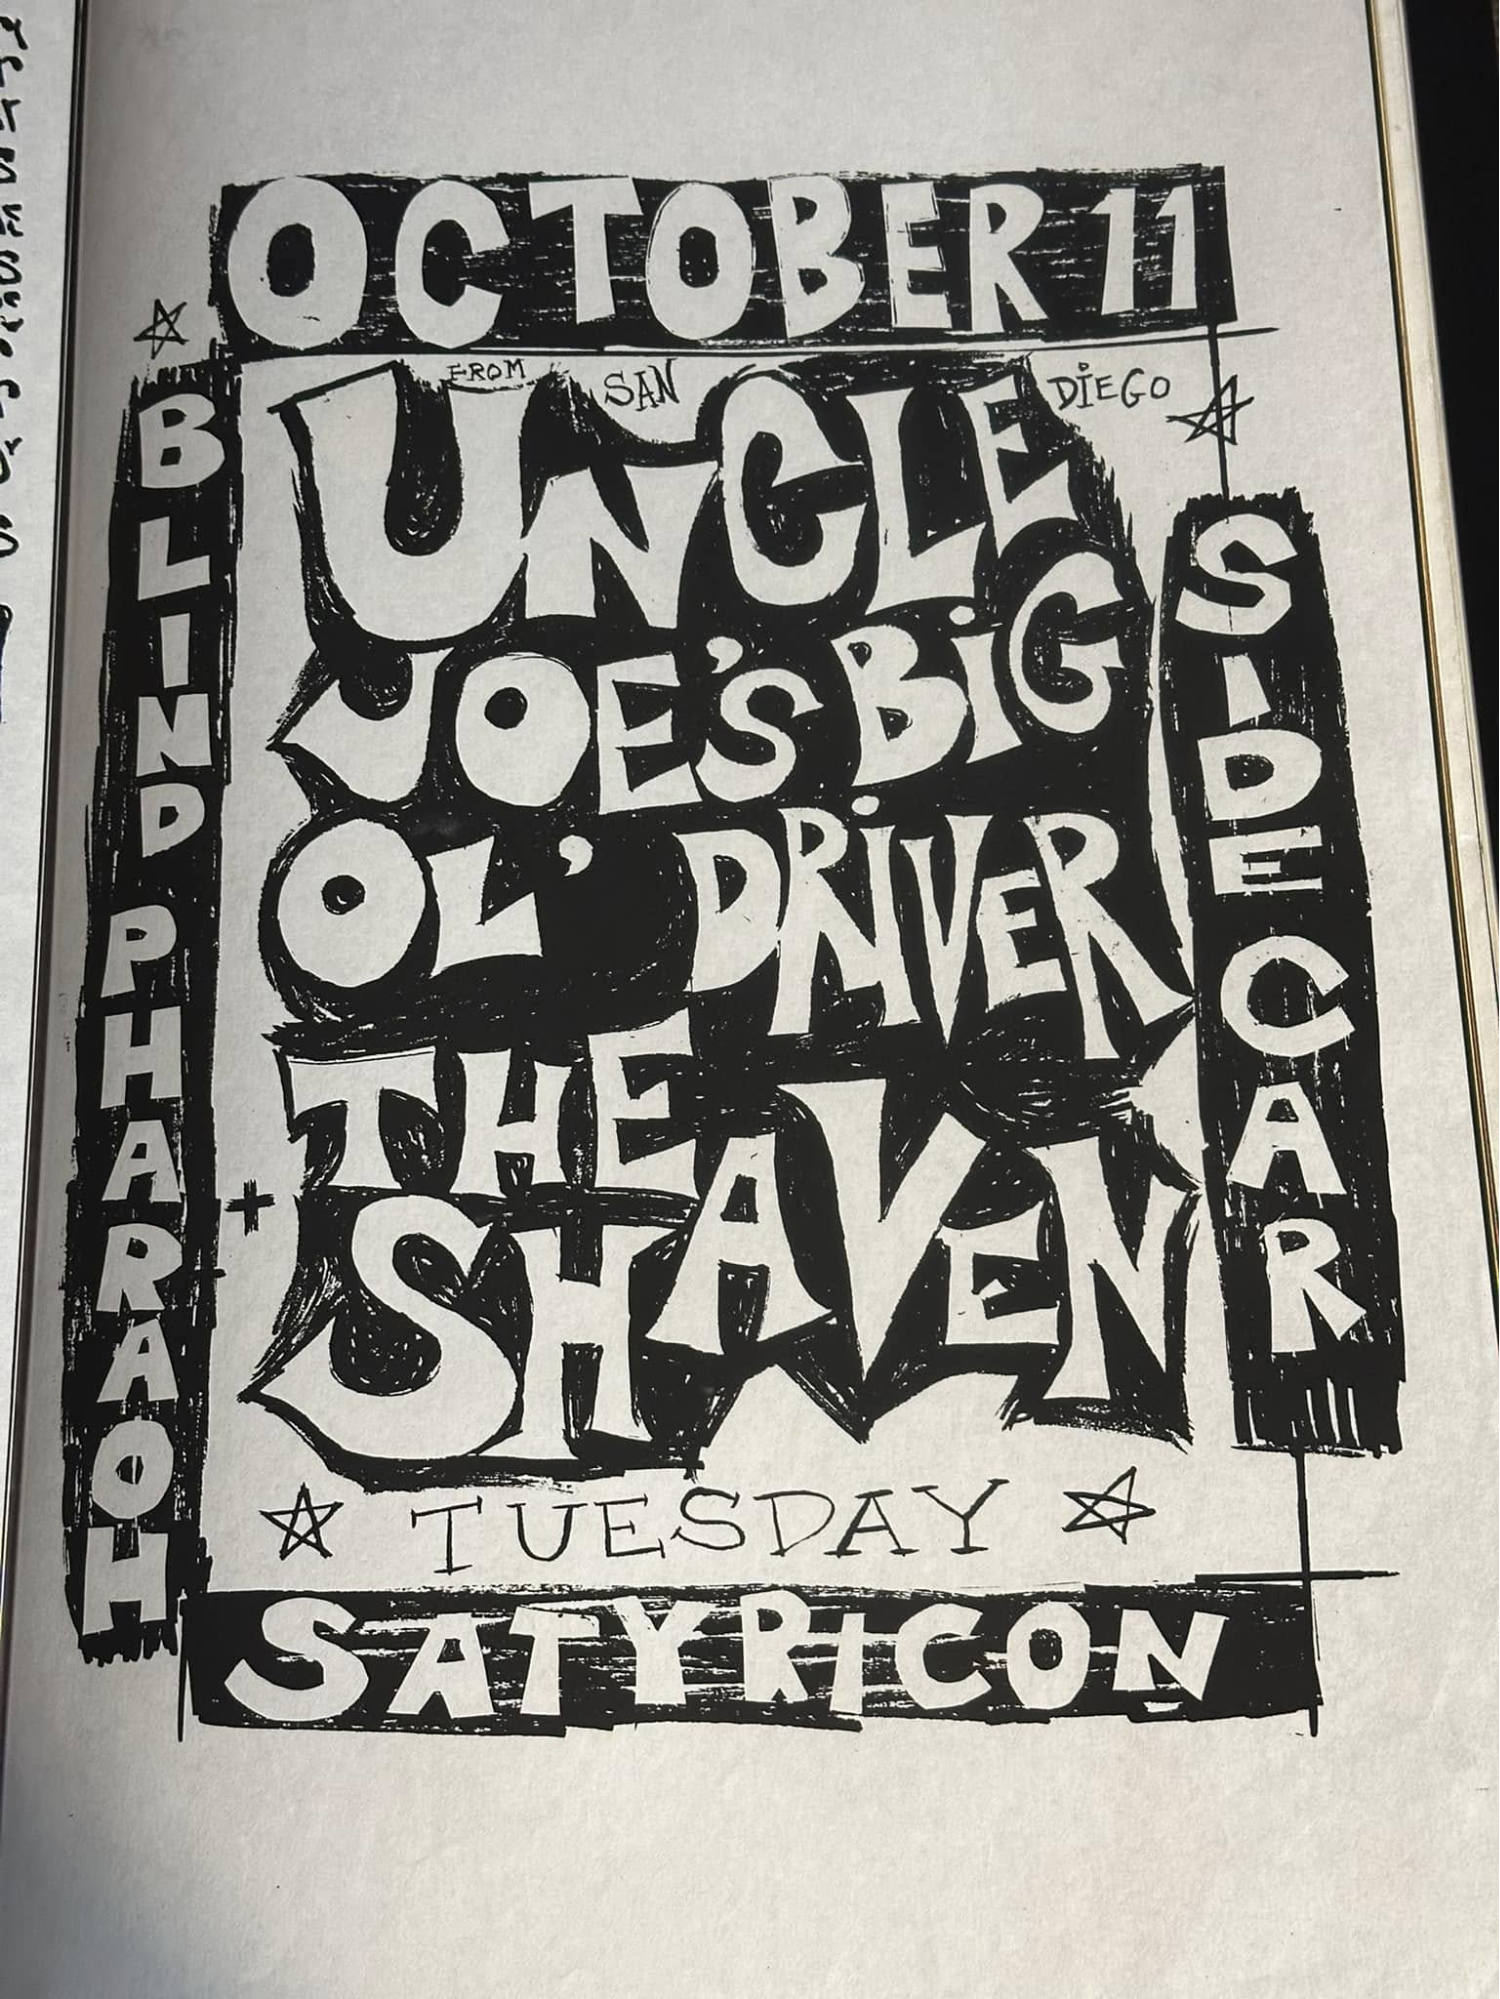 OCTOBER 11
FROM SAN DIEGO
UNCLE
JOE'S BiG
OL' DRiVER
THE
SHAVEN
BLIND PHARAOH
SIDECAR
TUESDAY
SATYRICON